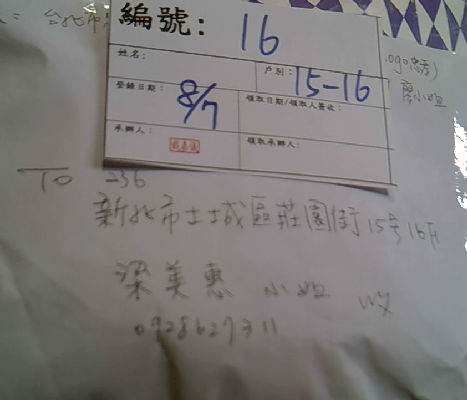 台北市
編號: 16
姓名:
戶別: 15-16
登錄日期: 8/7
領取日期/領取人簽收:
承辦人:
領取承辦人:
廖小姐
TO 236
新北市土城區莊園街15号16F
梁美惠 小姐 收
0928627311